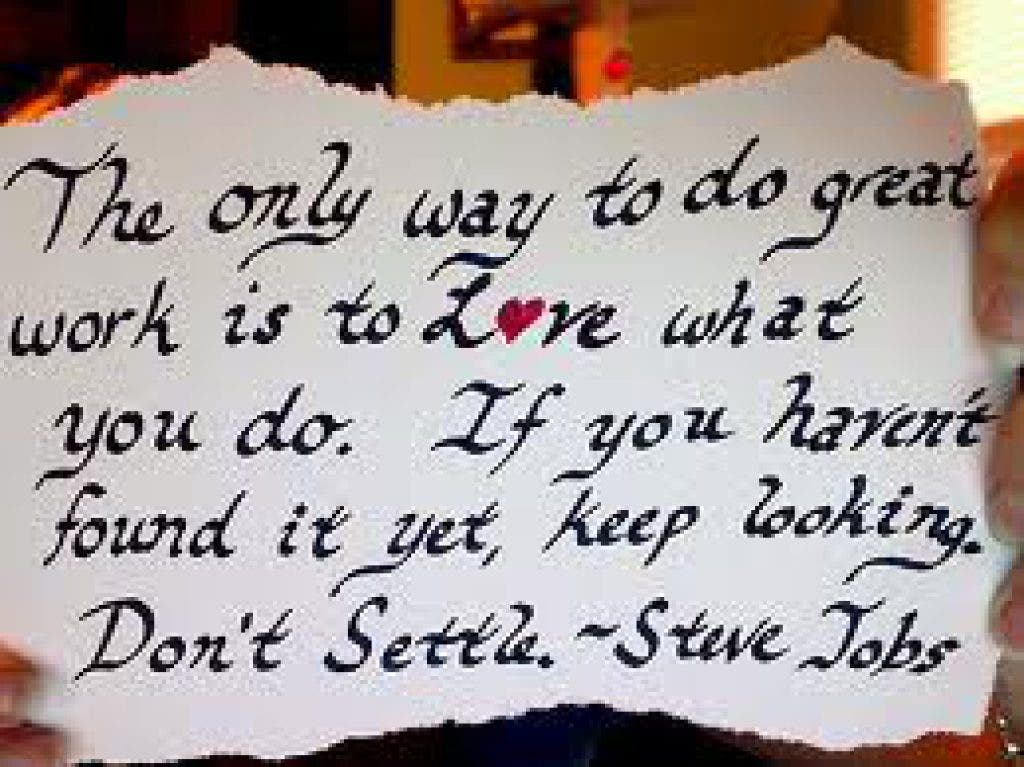 The only way to do great
work is to L♥ve what
you do. If you haven't
found it yet, keep looking.
Don't Settle. ~Steve Jobs